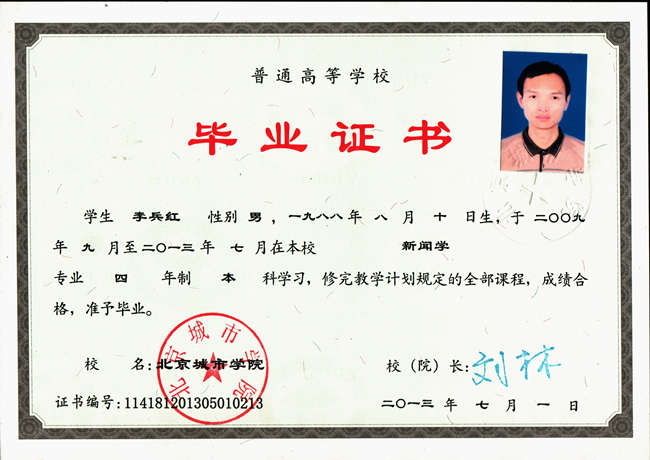 普通高等学校
毕业证书
学生 李兵红 性别 男，一九八八年 八 月 十 日生，于 二〇〇九
年 九 月至二〇一三年 七 月在本校 新闻学
专业 四 年制 本 科学习，修完教学计划规定的全部课程，成绩合
格，准予毕业。
校 名：北京城市学院 校（院）长：刘林
北京城市学院
证书编号：114181201305010213 二〇一三 年 七 月 一 日